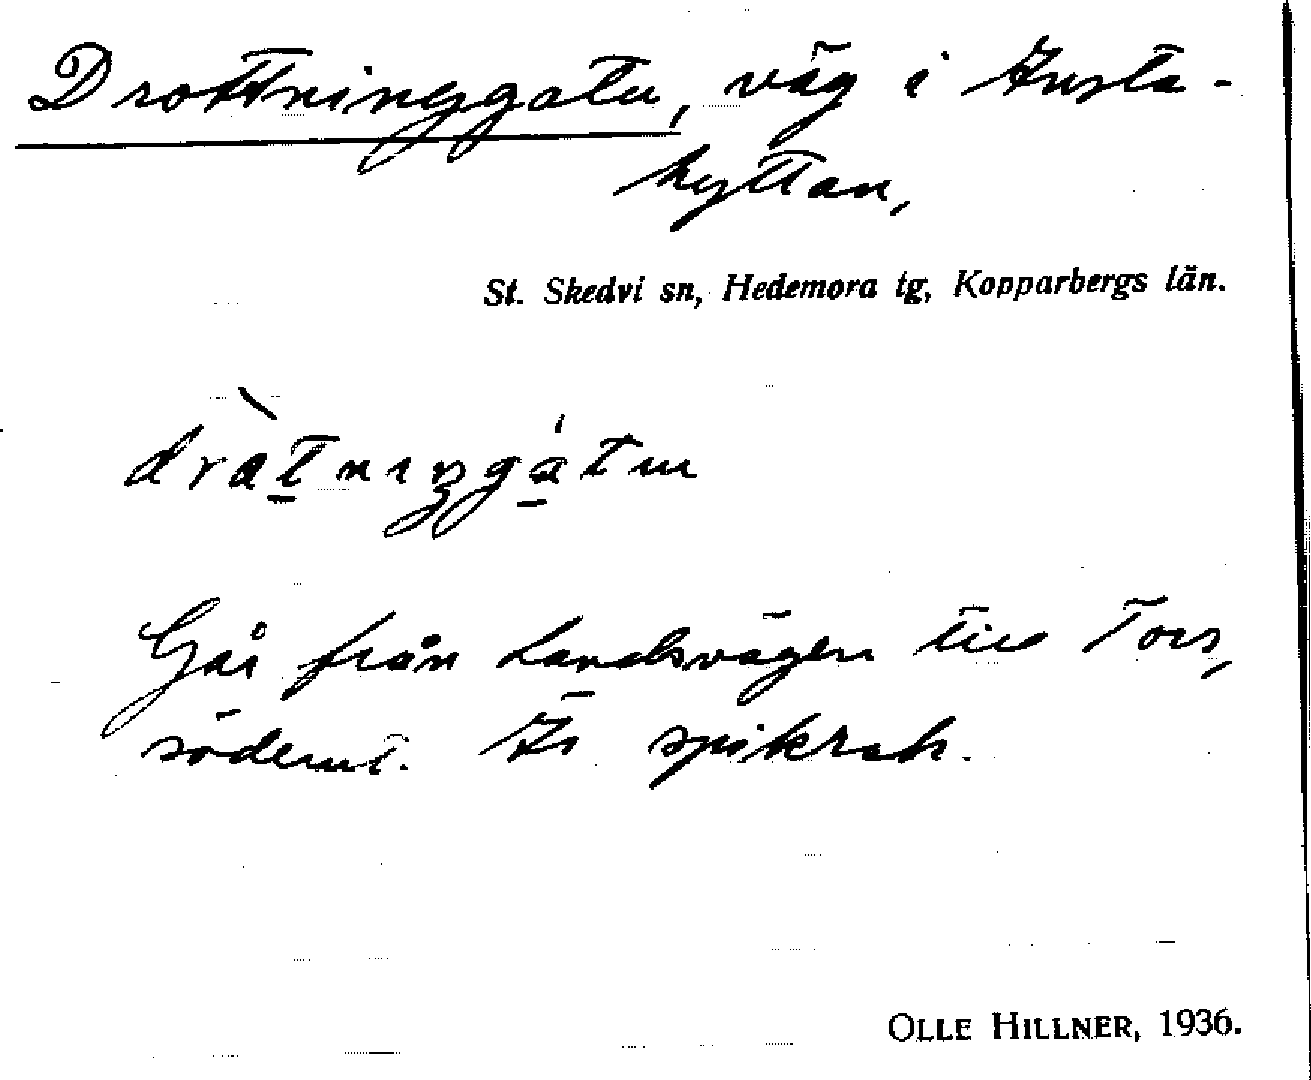 Drottninggatu, väg i Arsta-
hyttan,
St. Skedvi sn, Hedemora tg, Kopparbergs län.
Går från Landsvägen till Tors,
söderut. Är spikrak.
OLLE HILLNER, 1936.